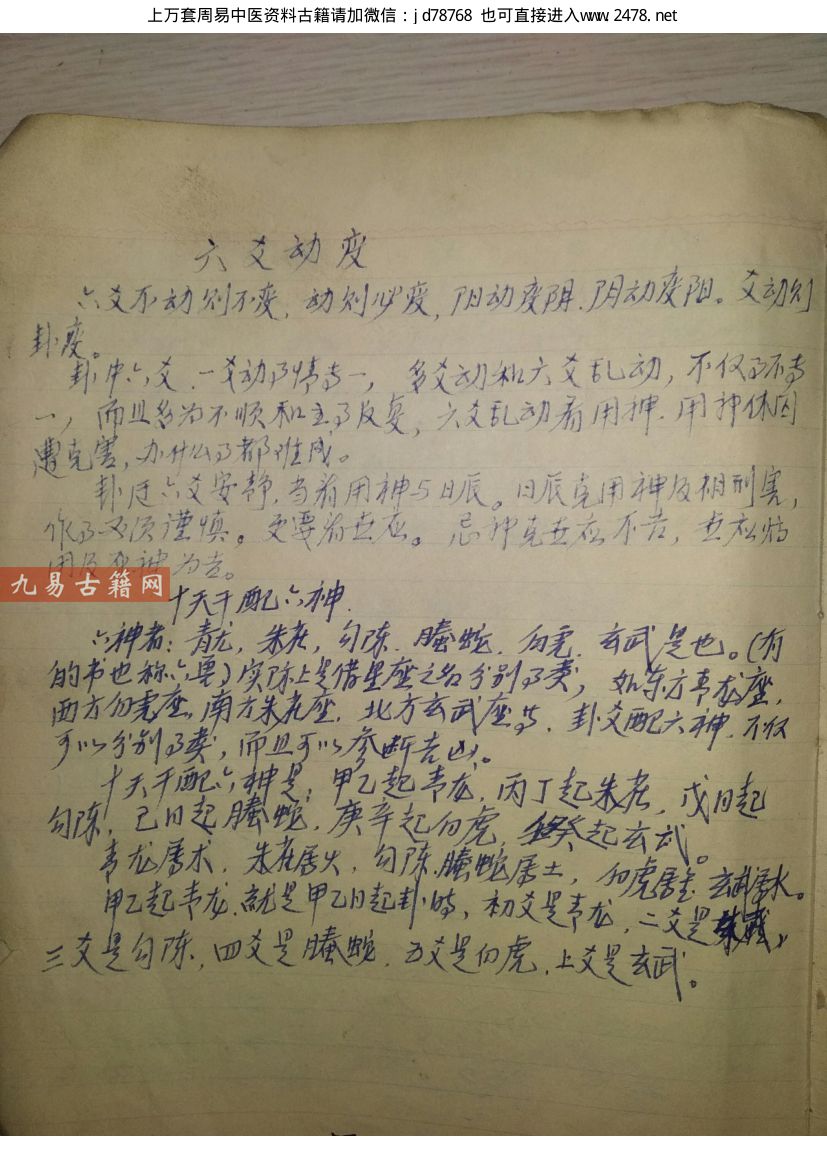 上万套周易中医资料古籍请加微信：jd78768 也可直接进入www.2478.net
六爻动变
六爻不动则不变，动则必变，阳动变阴，阴动变阳。爻动则
卦变。
卦中六爻，一爻动事情专一，多爻动和六爻乱动，不仅事不专
一，而且多为不顺和主事反复，六爻乱动看用神，用神休囚
遭克害，办什么事都难成。
卦逢六爻安静，当看用神与日辰。日辰克用神及相刑害，
作事必须谨慎。更要看世应。忌神克世应不吉，世应
为吉。
九易古籍网
十天干配六神
六神者：青龙，朱雀，勾陈，螣蛇，白虎，玄武是也。（有
的书也称六兽）实际上是借星座之名分别事类，如东方青龙座，
西方白虎座，南方朱雀座，北方玄武座等，卦爻配六神，不仅
可以分别事类，而且可以参断吉凶。
十天干配六神是：甲乙起青龙，丙丁起朱雀，戊日起
勾陈，己日起螣蛇，庚辛起白虎，癸起玄武。
青龙属木，朱雀属火，勾陈、螣蛇属土，白虎属金，玄武属水。
甲乙起青龙，就是甲乙日起卦时，初爻是青龙，二爻是朱雀，
三爻是勾陈，四爻是螣蛇，五爻是白虎，上爻是玄武。